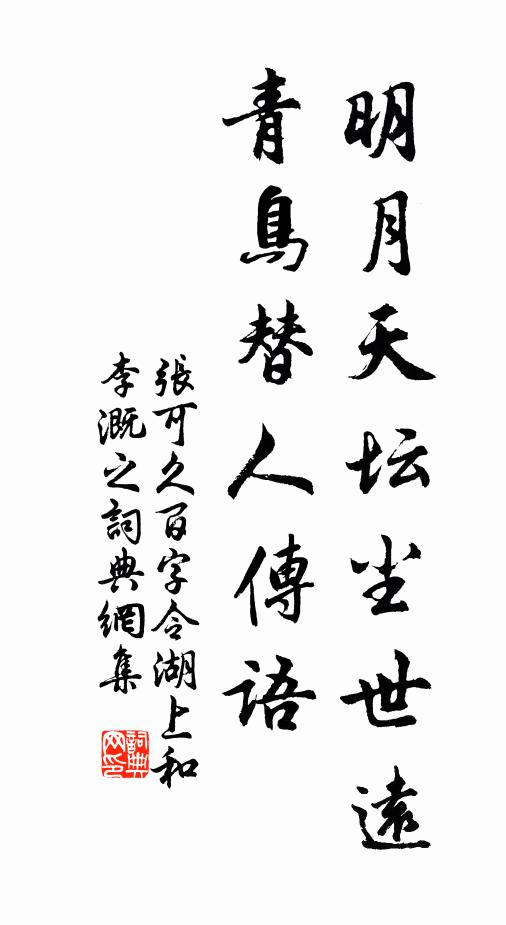 明月天坛尘世遠
青鳥替人傳語
張可久百字令湖上和
李溉之詞典網集
詞典网印